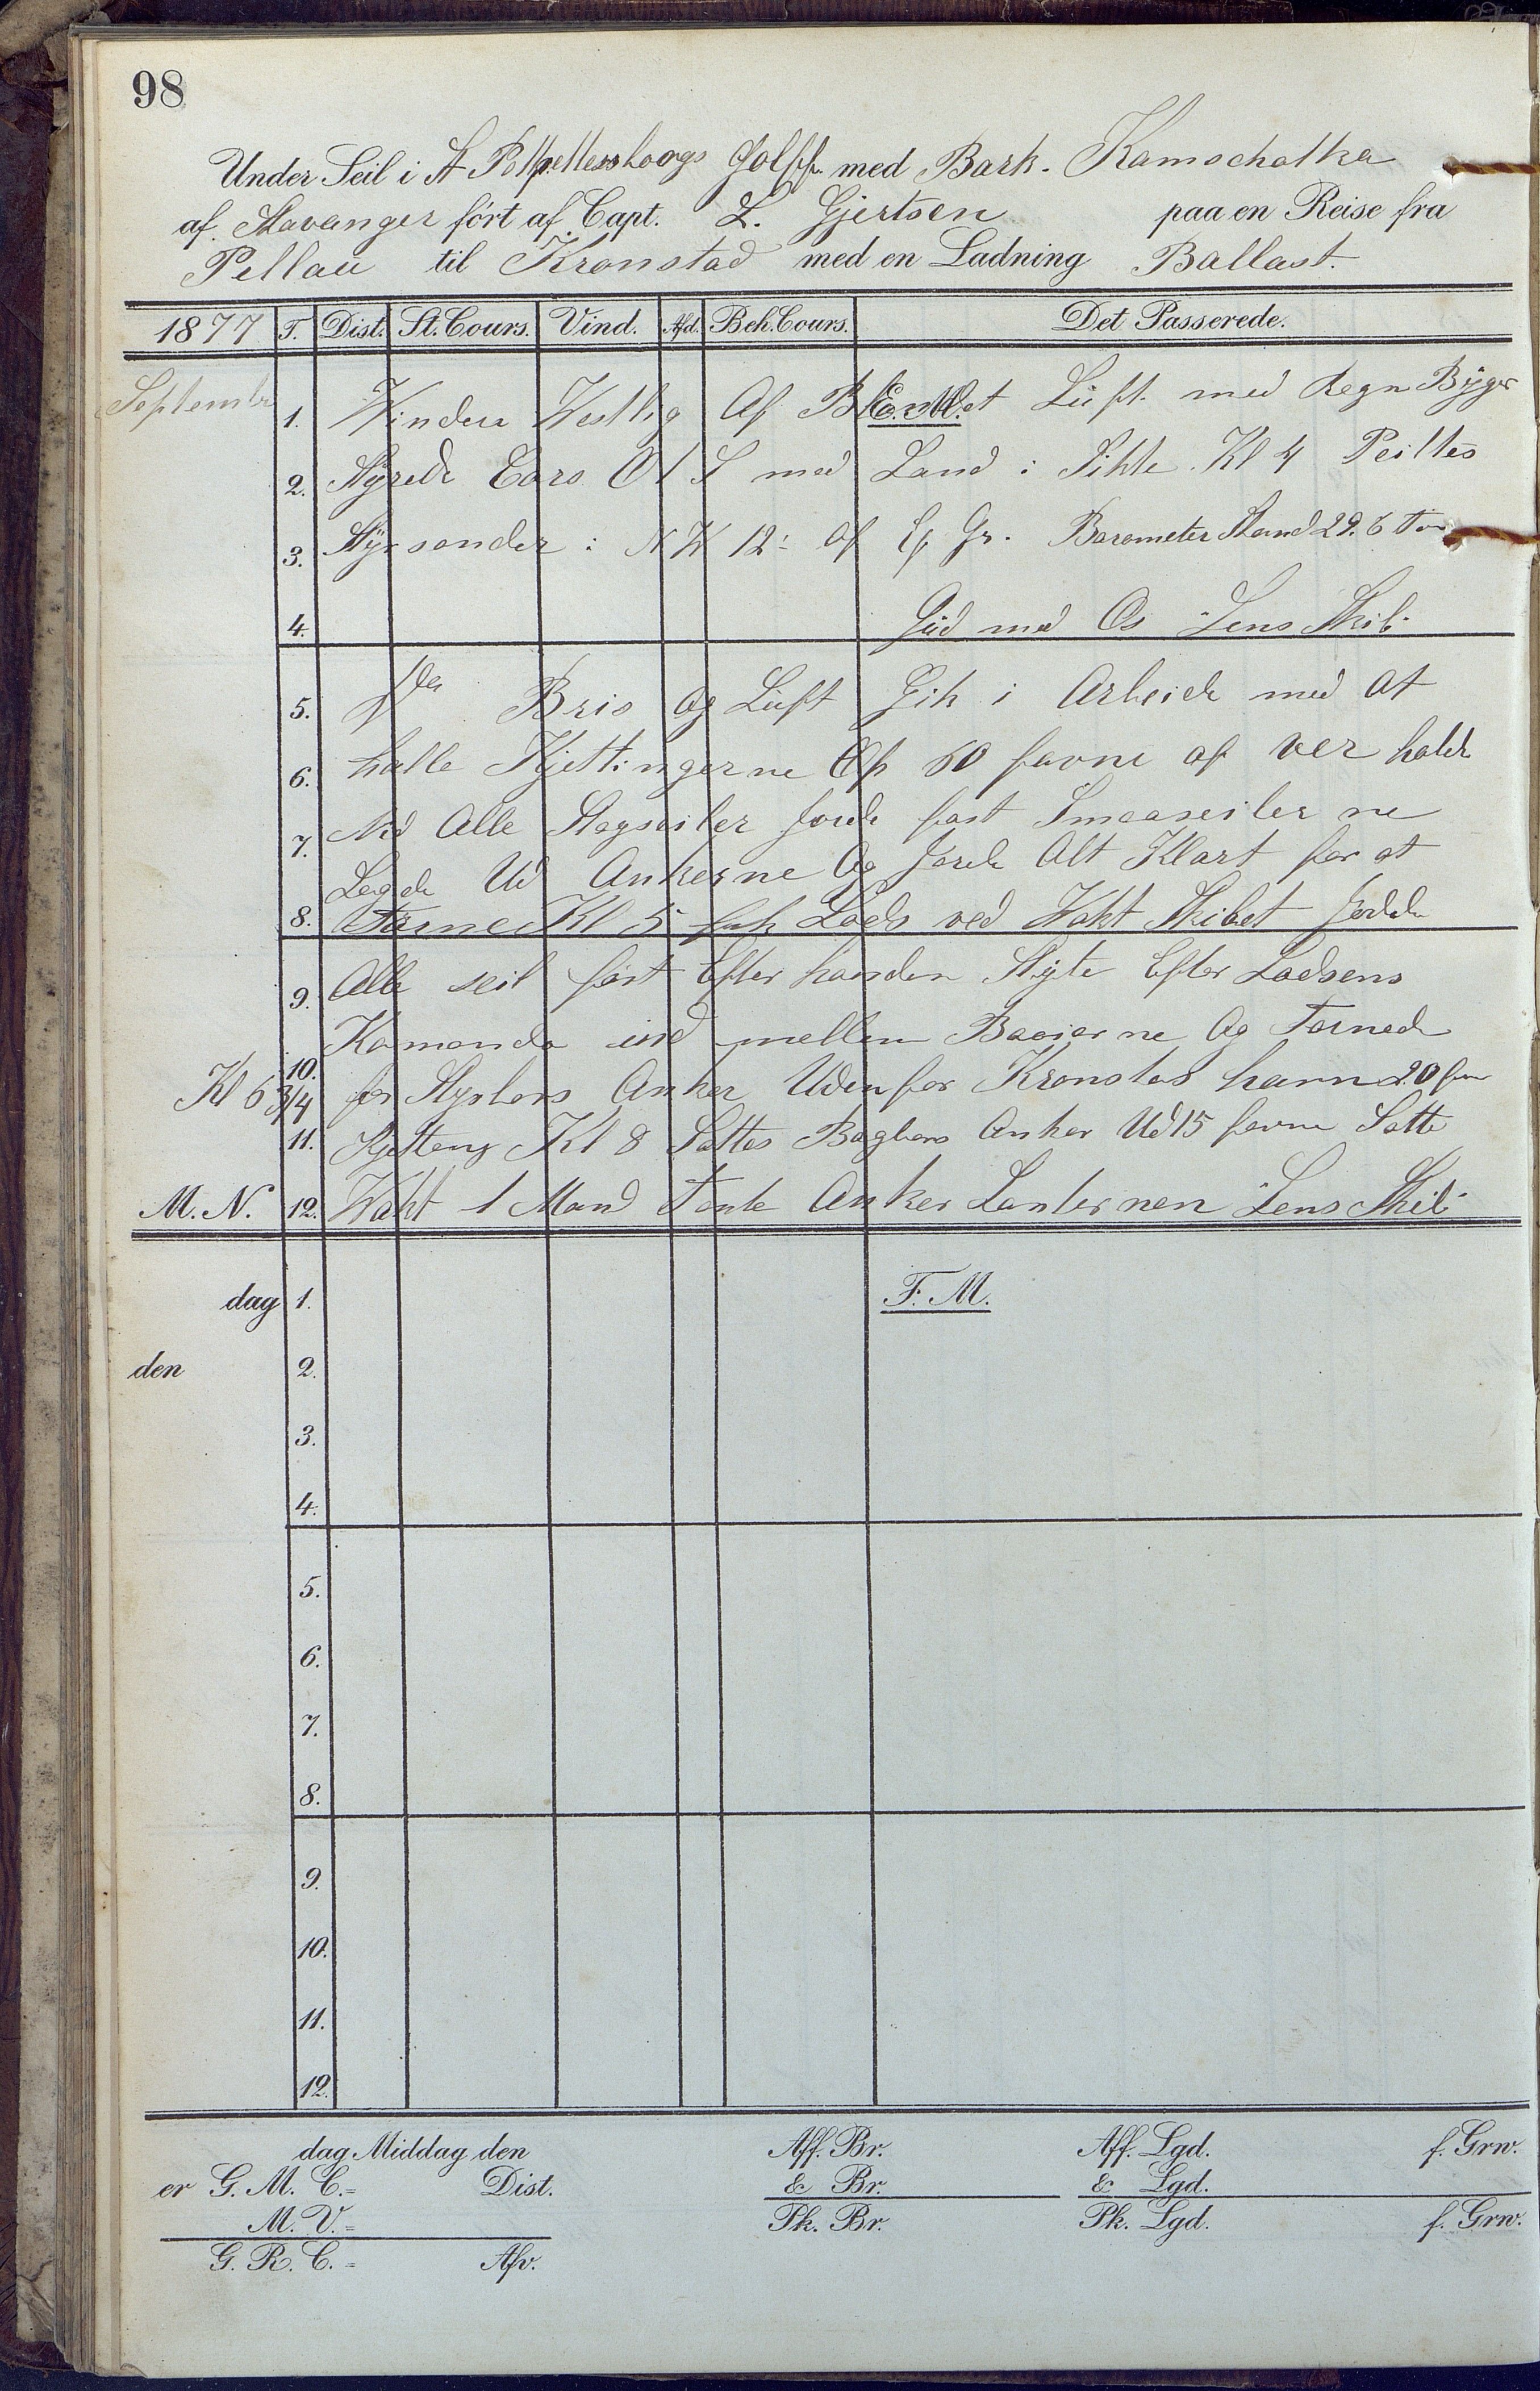 98
Under Seil i St Pettersborgs Golff. med Bark. Kamschatka
af. Stavanger ført af Capt. L. Gjertsen paa en Reise fra
Pellau til Kronstad med en Ladning Ballast.
1877 T. Dist. St. Cours. Vind. Afd. Beh. Cours. Det Passerede.
E.M.
September 1. Winden Westlig Af Blandet Lüft med Regn Byger
2. Styrede Cors Ot S med Land i Sikte. Kl 4 Peiltes
3. Styrsonder i NW 12' Af Eg Gr. Barometer Stand 29.6 Tom
4. Güd med Os Lens Skib
5. Do Bris Og Lüft Gik i Arbeide med At
6. halle Kjettingerne Op 60 favne af ver halede
7. Ned Alle Stagseiler Jorde fast Smaaseilerne
Lagde Ud Ankerne Og Jorde Alt Klart for at
8. Tørne Kl 5 fik Lods ved Wakt Skibet Jorde
9. Alle seil fast Efter haanden Styte Efter Lodsens
Komando ind mellem Baaierne Og Tørnede
10. Kl 6 3/4 for Styrbors Anker Uden for Kronstas havn 20 favn
11. Kjetteng Kl 8 Sattes Bagbors Anker Ud 15 favne Satte
M. N. 12. Wakt 1 Mand Tente Anker Lanternen Lens Skib
dag 1. F. M.
den 2.
3.
4.
5.
6.
7.
8.
9.
10.
11.
12.
dag Middag den Aff. Br. Aff. Lgd. f. Grw.
er G. M. C.= Dist. & Br. & Lgd.
M. V.= Pk. Br. Pk. Lgd. f. Grw.
G. R. C.= Afv.